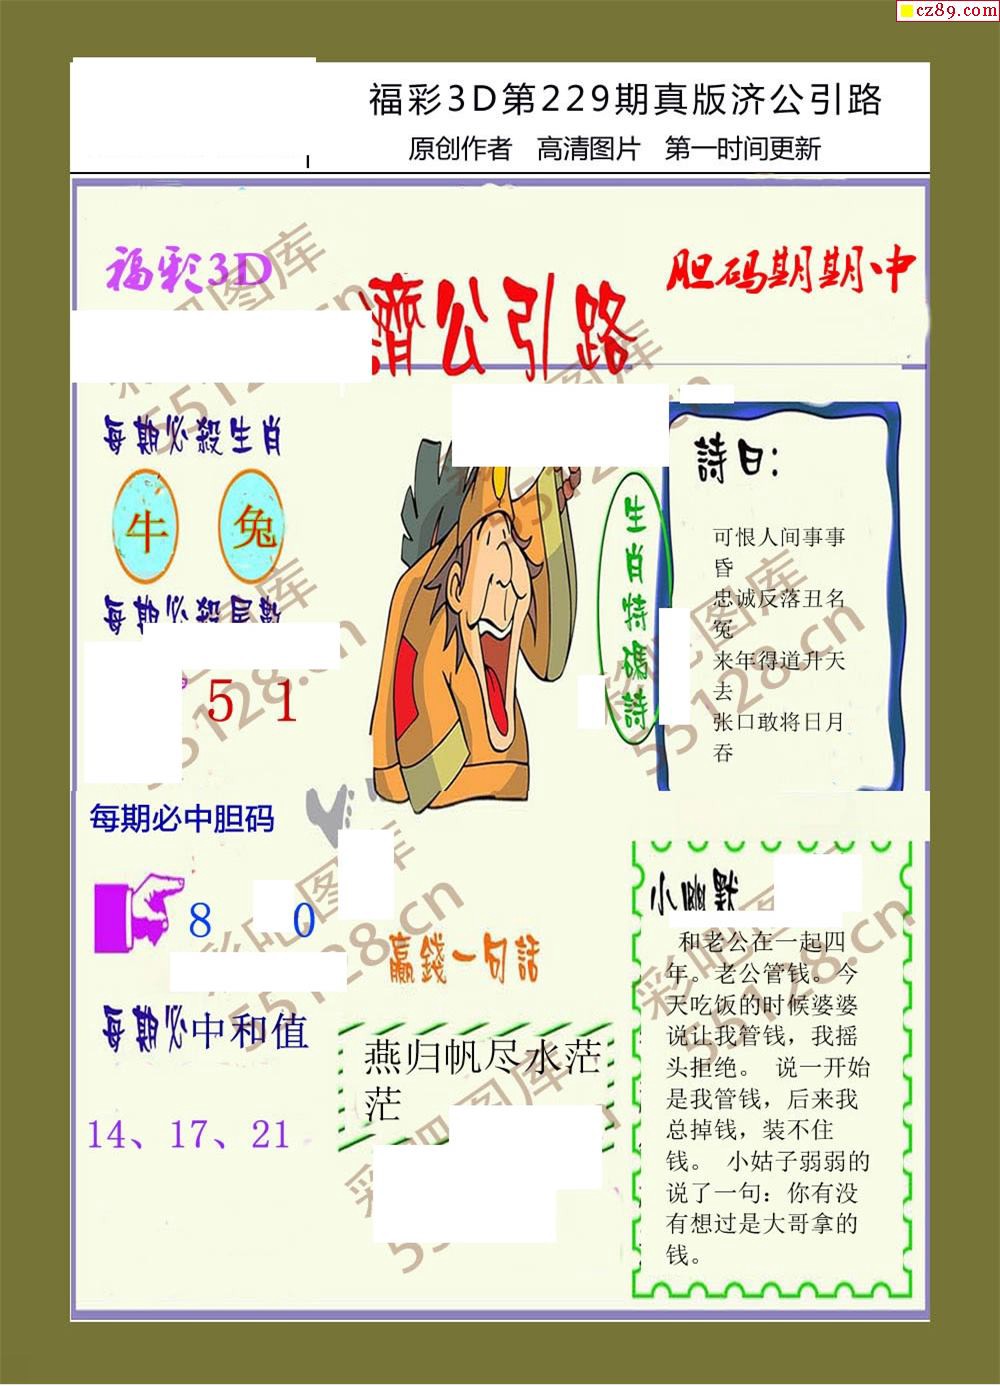 cz89.com
福彩3D第229期真版济公引路
原创作者 高清图片 第一时间更新
福彩3D
胆码期期中
濟公引路
每期必殺生肖
牛 兔
每期必殺尾數
5 1
生肖特碼詩
詩曰：
可恨人间事事
昏
忠诚反落丑名
冤
来年得道升天
去
张口敢将日月
吞
每期必中胆码
8 0
每期必中和值
14、17、21
贏錢一句話
燕归帆尽水茫
茫
小幽默
和老公在一起四
年。老公管钱。今
天吃饭的时候婆婆
说让我管钱，我摇
头拒绝。 说一开始
是我管钱，后来我
总掉钱，装不住
钱。 小姑子弱弱的
说了一句：你有没
有想过是大哥拿的
钱。
彩吧图库
55128.cn